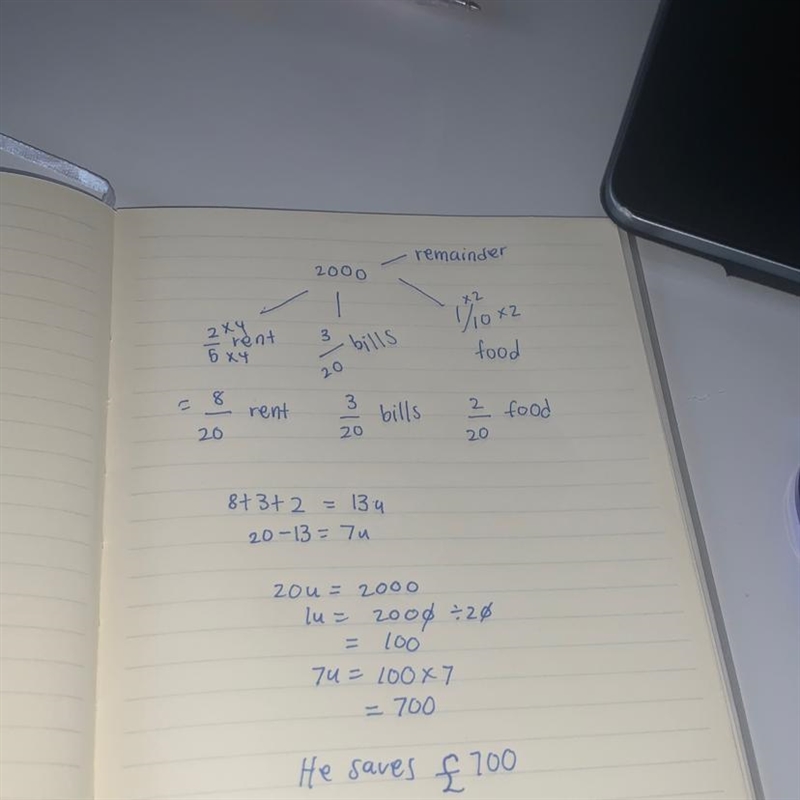 2000 remainder
2 x4 / 5 x4 rent 3/20 bills 1 x2 / 10 x2 food
= 8/20 rent 3/20 bills 2/20 food
8+3+2 = 13u
20-13 = 7u
20u = 2000
1u = 2000 ÷20
= 100
7u = 100 x 7
= 700
He saves £700